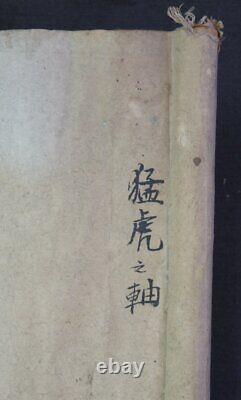 猛虎之軸
ebay